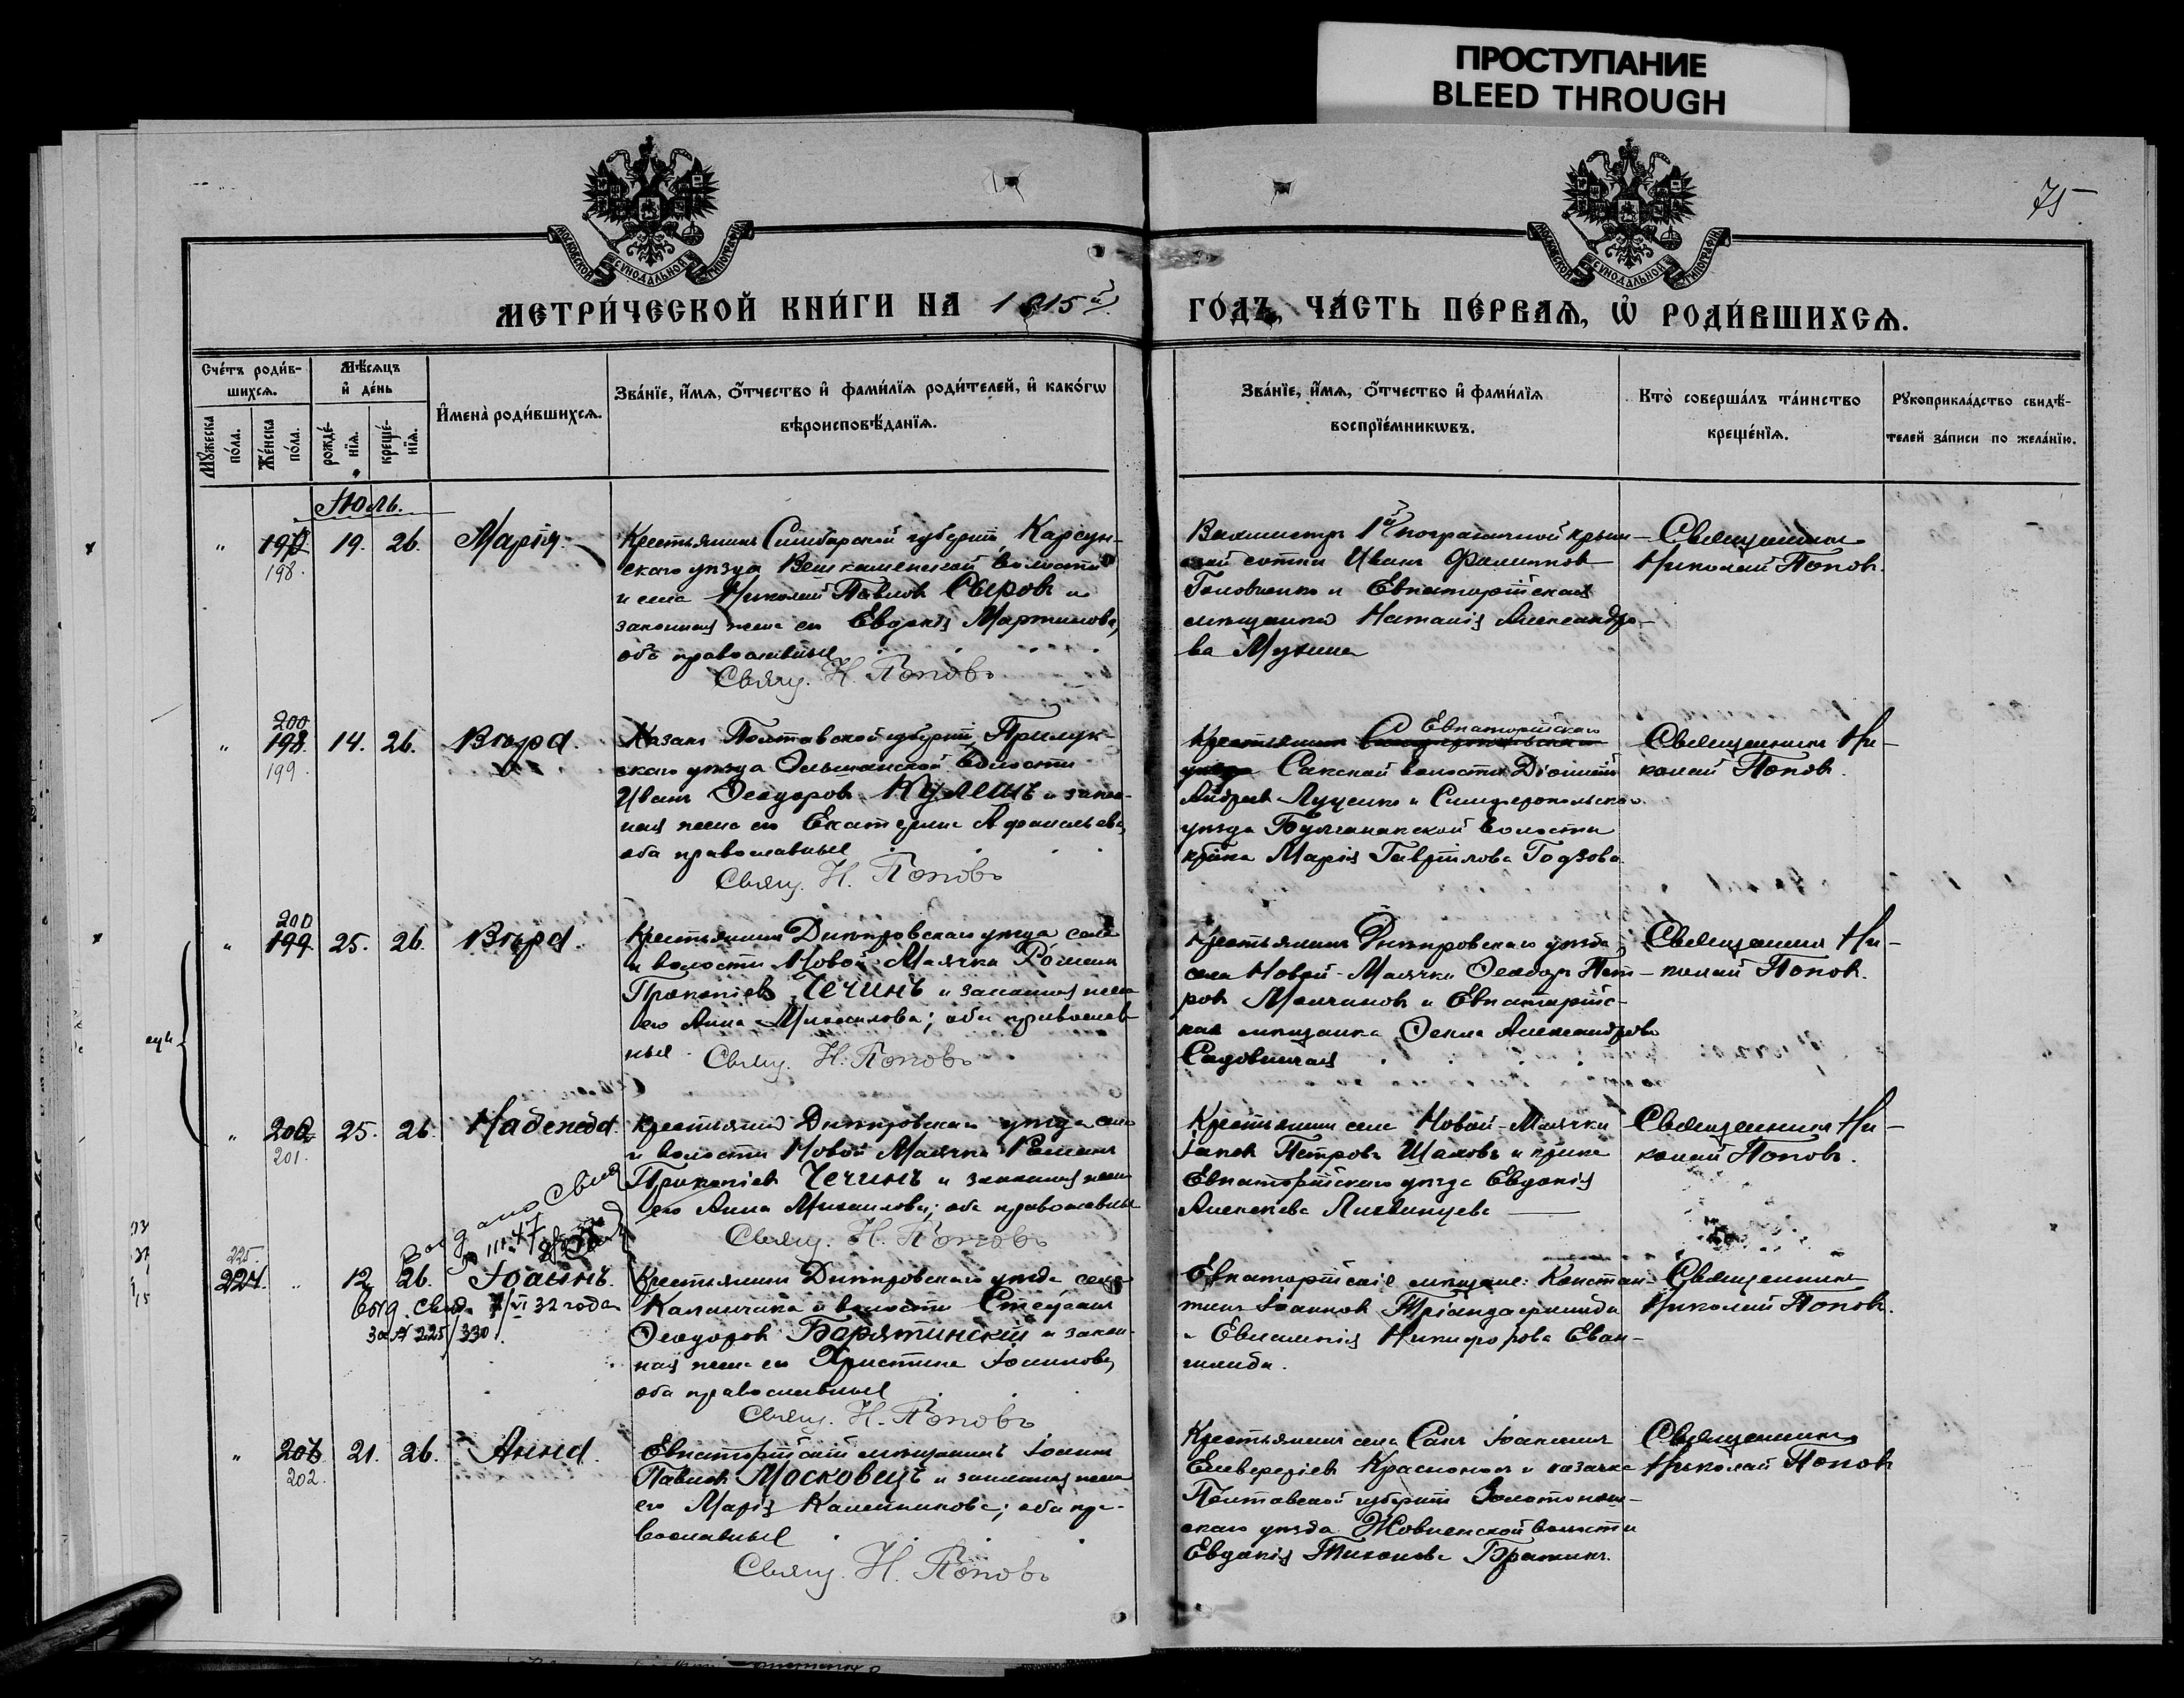 ПРОСТУПАНИЕ
BLEED THROUGH
75
МОСКОВСКОЙ СУНОДАЛЬНОЙ ТИПОГРАФІИ
МОСКОВСКОЙ СУНОДАЛЬНОЙ ТИПОГРАФІИ
МЕТРИ́ЧЕСКОЙ КНИ́ГИ НА 1915й
ГО́ДЪ, ЧА́СТЬ ПЕ́РВАѦ, Ѡ҆ РОДИ́ВШИХСѦ.
Сче́тъ роди́в-
шихсѧ.
Мꙋжеска по́ла.
Же́нска по́ла.
Мѣ́сѧцъ
и҆ де́нь
рожде́-
нїѧ.
креще́-
нїѧ.
И҆мена̀ роди́вшихсѧ.
Зва́нїе, и҆́мѧ, ѻ҆́тчество и҆ фами́лїѧ роди́телей, и҆ како́гѡ
вѣроисповѣ́данїѧ.
Зва́нїе, и҆́мѧ, ѻ҆́тчество и҆ фами́лїѧ
воспрїе́мникѡвъ.
Кто̀ соверша́лъ та́инство
креще́нїѧ.
Рꙋкоприкла́дство свидѣ́-
телей за́писи по жела́нїю.
Іюль.
" 197 19. 26. Марія.
198.
Крестьянинъ Симбирской губерніи, Карсун-
скаго уѣзда Вешкаменской волости
и села Николай Павловъ Сыровъ и
законная жена его Евдокія Мартинова,
оба православные
Свящ. Н. Поповъ
Вахмистръ 1й пограничной крым-
ской сотни Иванъ Филиппов
Головченко и Евпаторійская
мѣщанка Наталія Александро-
ва Мухина
Священникъ
Николай Поповъ.
200
" 198. 14. 26. Вѣра.
199.
Казакъ Полтавской губерніи Прилук-
скаго уѣзда Ольшанской волости
Иванъ Ѳеодоровъ Кулешъ и закон-
ная жена его Екатерина Афанасьева,
оба православные
Свящ. Н. Поповъ
Евпаторійскаго
Крестьянинъ
уѣзда Сакской волости Діонисій
Андреевъ Луценко и Симферопольскаго
уѣзда Булганакской волости
кр-нка Марія Гаврилова Годзова.
Священникъ Ни-
колай Поповъ.
200
" 199. 25. 26. Вѣра.
Крестьянинъ Днѣпровскаго уѣзда села
и волости Новой Маячки Романъ
Прокопіевъ Чечинъ и законная жена
его Анна Михаилова; оба православ-
ные. Свящ. Н. Поповъ
Крестьянинъ Днѣпровскаго уѣзда,
села Новой-Маячки Ѳеодоръ Пет-
ровъ Молчановъ и Евпаторійс-
кая мѣщанка Ѳекла Александрова
Садовничая
Священникъ Ни-
колай Поповъ.
" 200 25. 26. Надежда.
201.
Крестьянинъ Днѣпровскаго уѣзда села
и волости Новой Маячки Романъ
Прокопіевъ Чечинъ и законная жена
его Анна Михаилова; оба православные
Свящ. Н. Поповъ
Крестьянинъ села Новой-Маячки
Іаковъ Петровъ Шаховъ и кр-нка
Евпаторійскаго уѣзда Евдокія
Алексѣева Литвинцева
Священникъ Ни-
колай Поповъ.
225.
224. " 12. 26. Іоаннъ.
выд. свид. 7/VI 32 года
за № 225/330
Крестьянинъ Днѣпровскаго уѣзда села
Каланчака и волости Стефанъ
Ѳеодоровъ Барятинскій и закон-
ная жена его Христина Іоаннова,
оба православные
Свящ. Н. Поповъ
Евпаторійскіе мѣщане: Констан-
тинъ Іоанновъ Тріандафилиди
и Евлампія Никифорова Еван-
гилиди.
Священникъ
Николай Поповъ.
" 201 21. 26. Анна.
202.
Евпаторійскій мѣщанинъ Іоаннъ
Павловъ Московецъ и законная жена
его Марія Калинникова; оба пра-
вославные
Свящ. Н. Поповъ
Крестьянинъ села Саки Іоакимъ
Елевферіевъ Красноносъ и казачка
Полтавской губерніи Золотонош-
скаго уѣзда Жовнинской волости
Евдокія Тихонова Братикъ.
Священникъ
Николай Поповъ